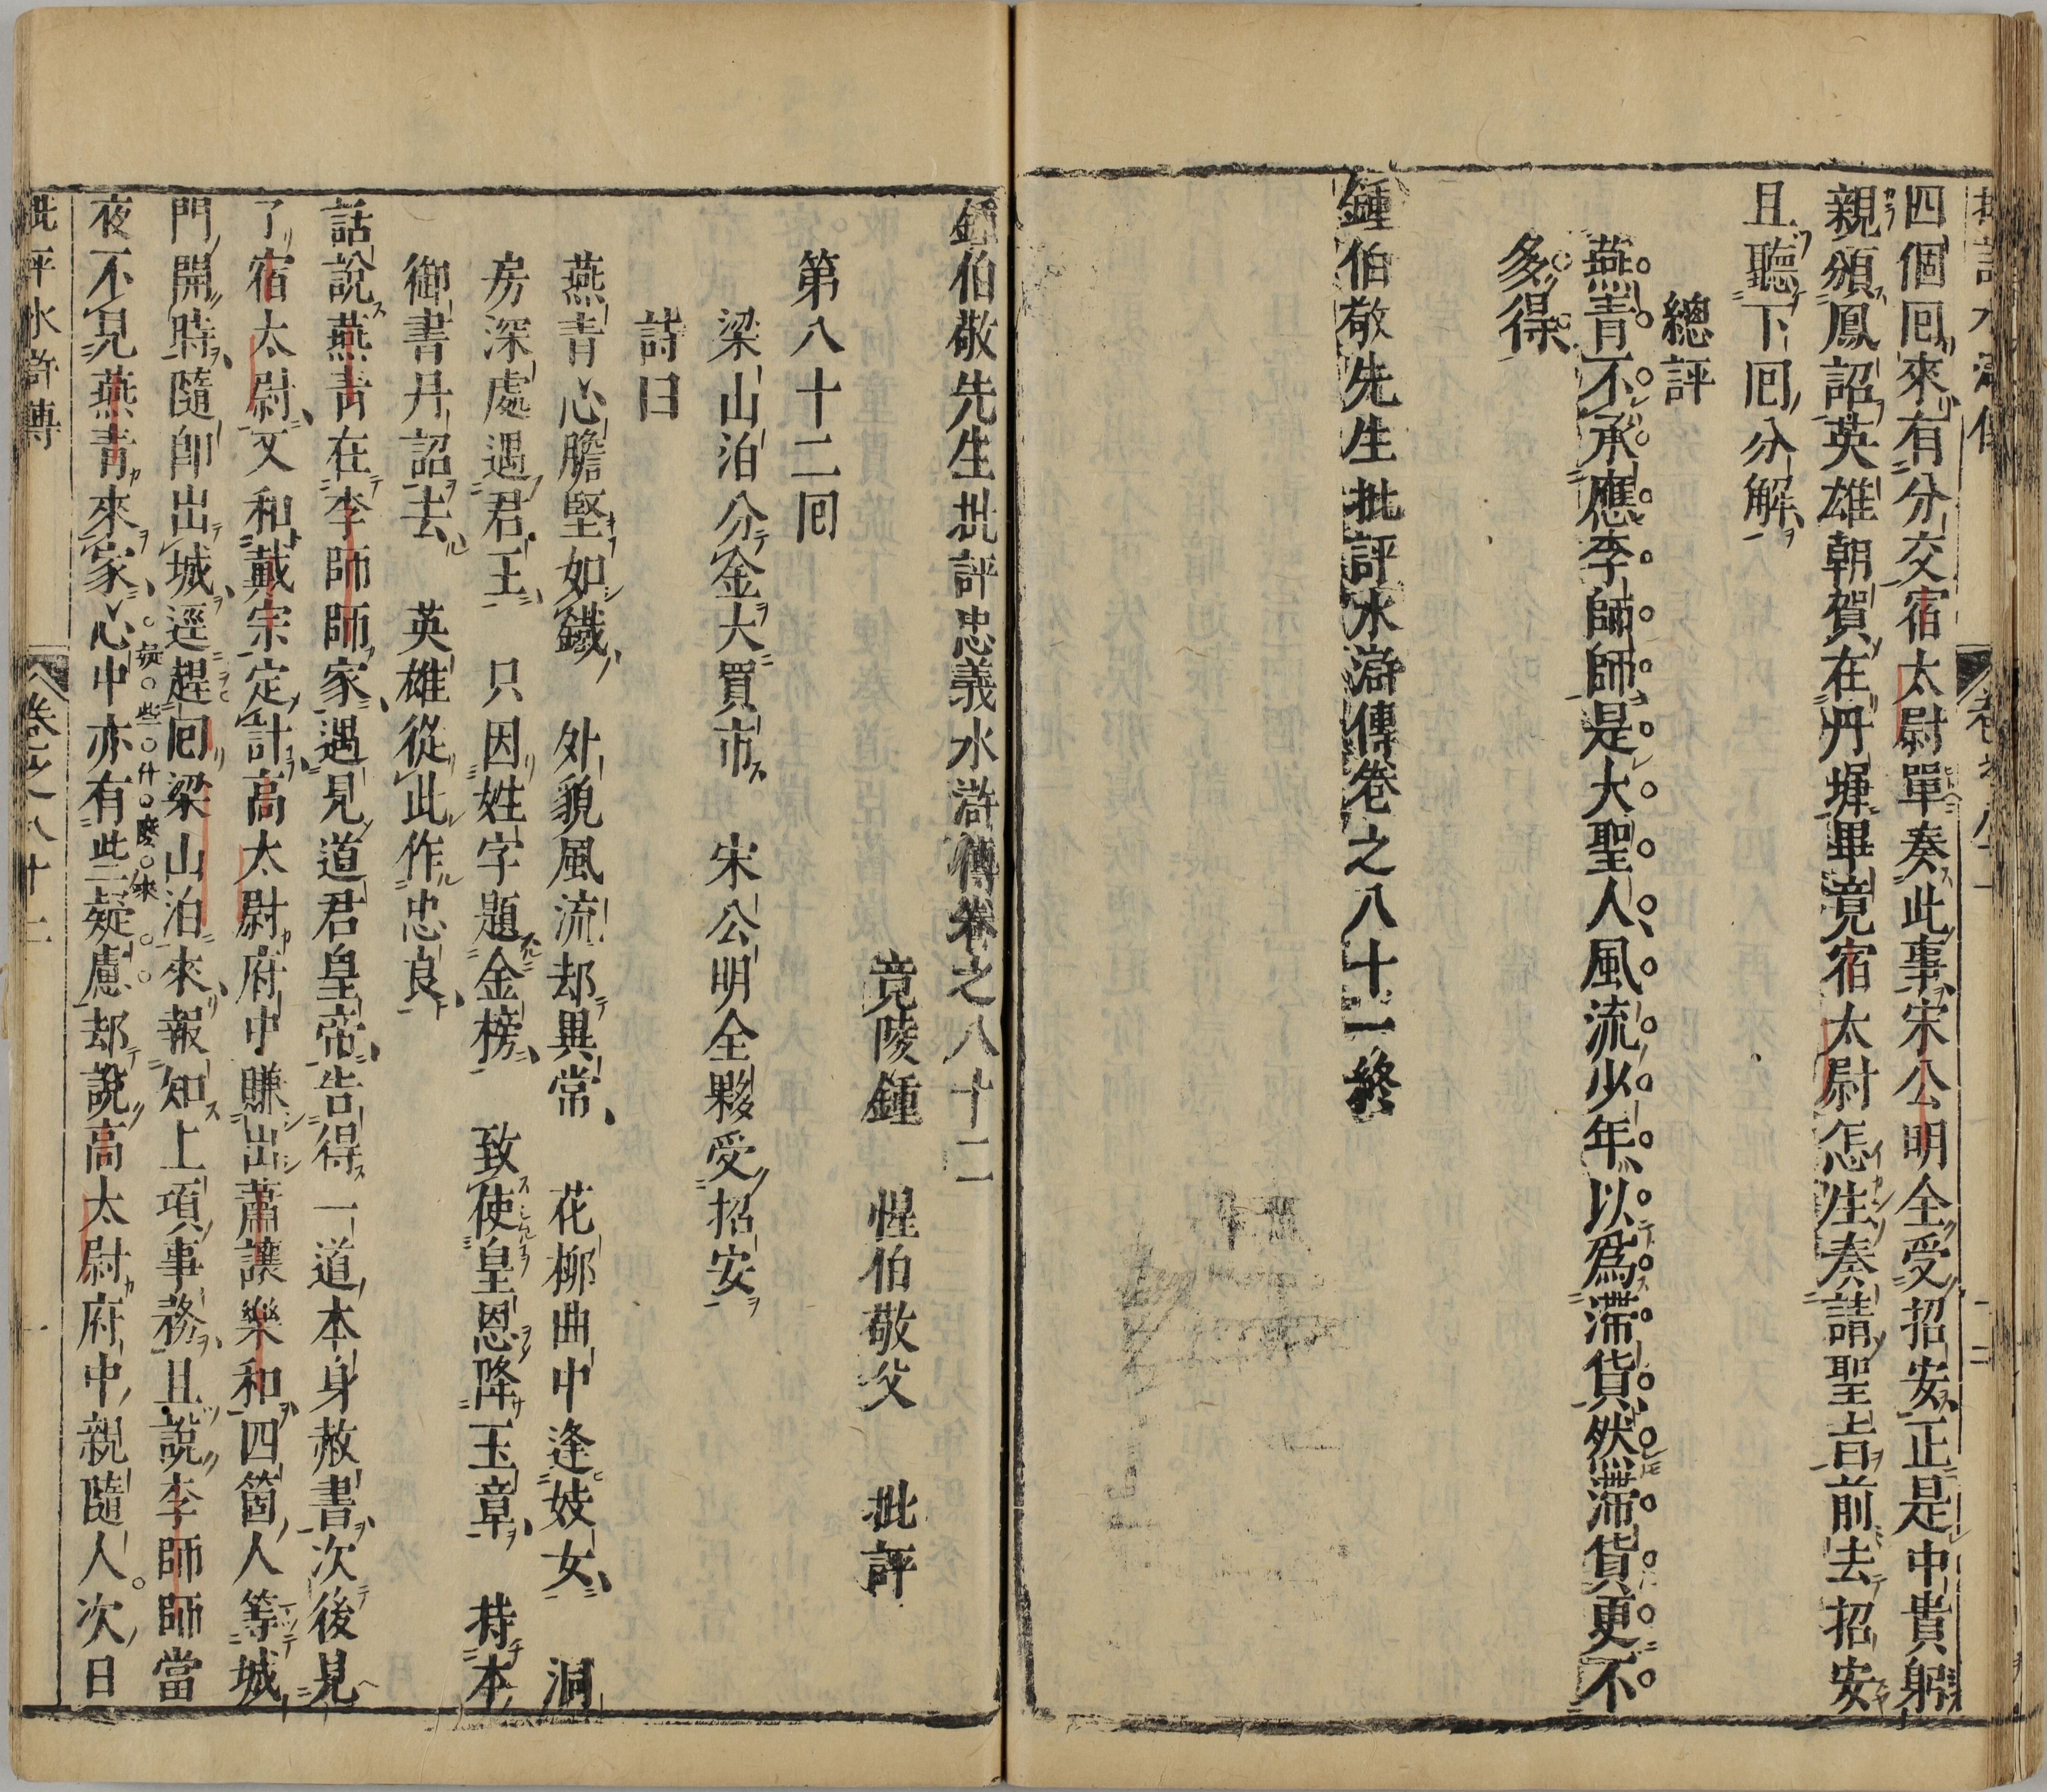 四個囘來有分交宿太尉單奏此事宋公明全受招安正是中貴躬
親頒鳳詔英雄朝賀在丹墀畢竟宿太尉怎生奏請聖旨前去招安
且聽下囘分解
總評
燕青不承應李師師是大聖人風流少年以爲滯貨然滯貨更不
多得
鍾伯敬先生批評水滸傳卷之八十一終
鍾伯敬先生批評忠義水滸傳卷之八十二
竟陵鍾 惺伯敬父 批評
第八十二囘
梁山泊分金大買市 宋公明全夥受招安
詩曰
燕青心膽堅如鐵 外貌風流却異常 花柳曲中逢妓女 洞
房深處遇君王 只因姓字題金榜 致使皇恩降玉章 持本
御書丹詔去 英雄從此作忠良
話說燕青在李師師家遇見道君皇帝告得一道本身赦書次後見
了宿太尉又和戴宗定計高太尉府中賺出蕭讓樂和四箇人等城
門開時隨卽出城逕趕囘梁山泊來報知上項事務且說李師師當
疑些什麽來
夜不見燕青來家心中亦有些疑慮却說高太尉府中親隨人次日
批評水滸傳 卷之八十二 一